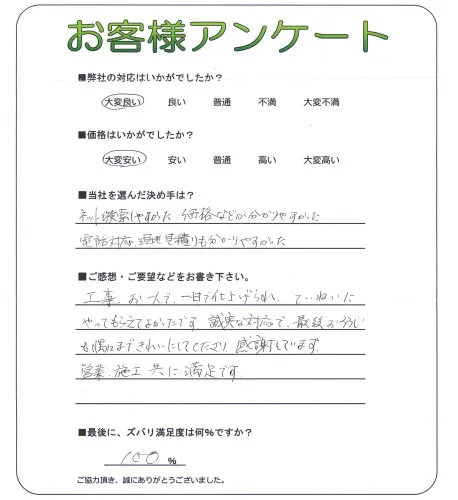 お客様アンケート
■弊社の対応はいかがでしたか？
大変良い 良い 普通 不満 大変不満
■価格はいかがでしたか？
大変安い 安い 普通 高い 大変高い
■当社を選んだ決め手は？
ネット検索しやすかった 価格などが分かりやすかった
電話対応、現地見積りも分かりやすかった
■ご感想・ご要望などをお書き下さい。
工事、お一人で、一日で仕上げられ、ていねいに
やってもらえてよかったです。誠実な対応で、最後のそうじ
も隅々まできれいにしてくださり、感謝しています。
営業、施工共に満足です。
■最後に、ズバリ満足度は何%ですか？
100 %
ご協力頂き、誠にありがとうございました。